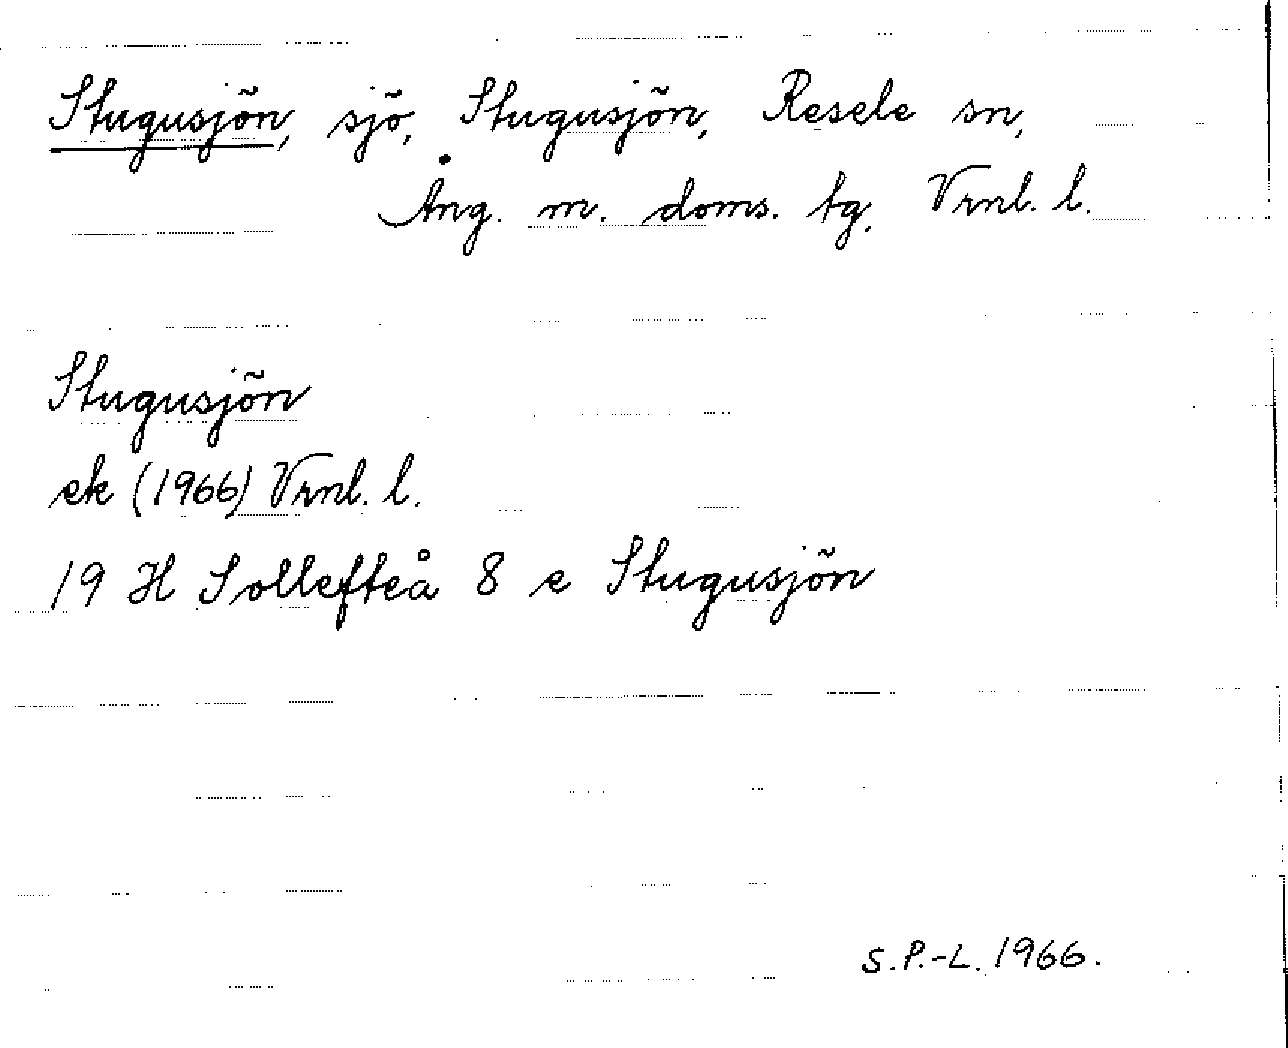 Stugusjön, sjö, Stugusjön, Resele sn,
Ång. m. doms. tg. Vrnl. l.
Stugusjön
ek (1966) Vrnl. l.
19 H Sollefteå 8 e Stugusjön
S.P.-L. 1966.